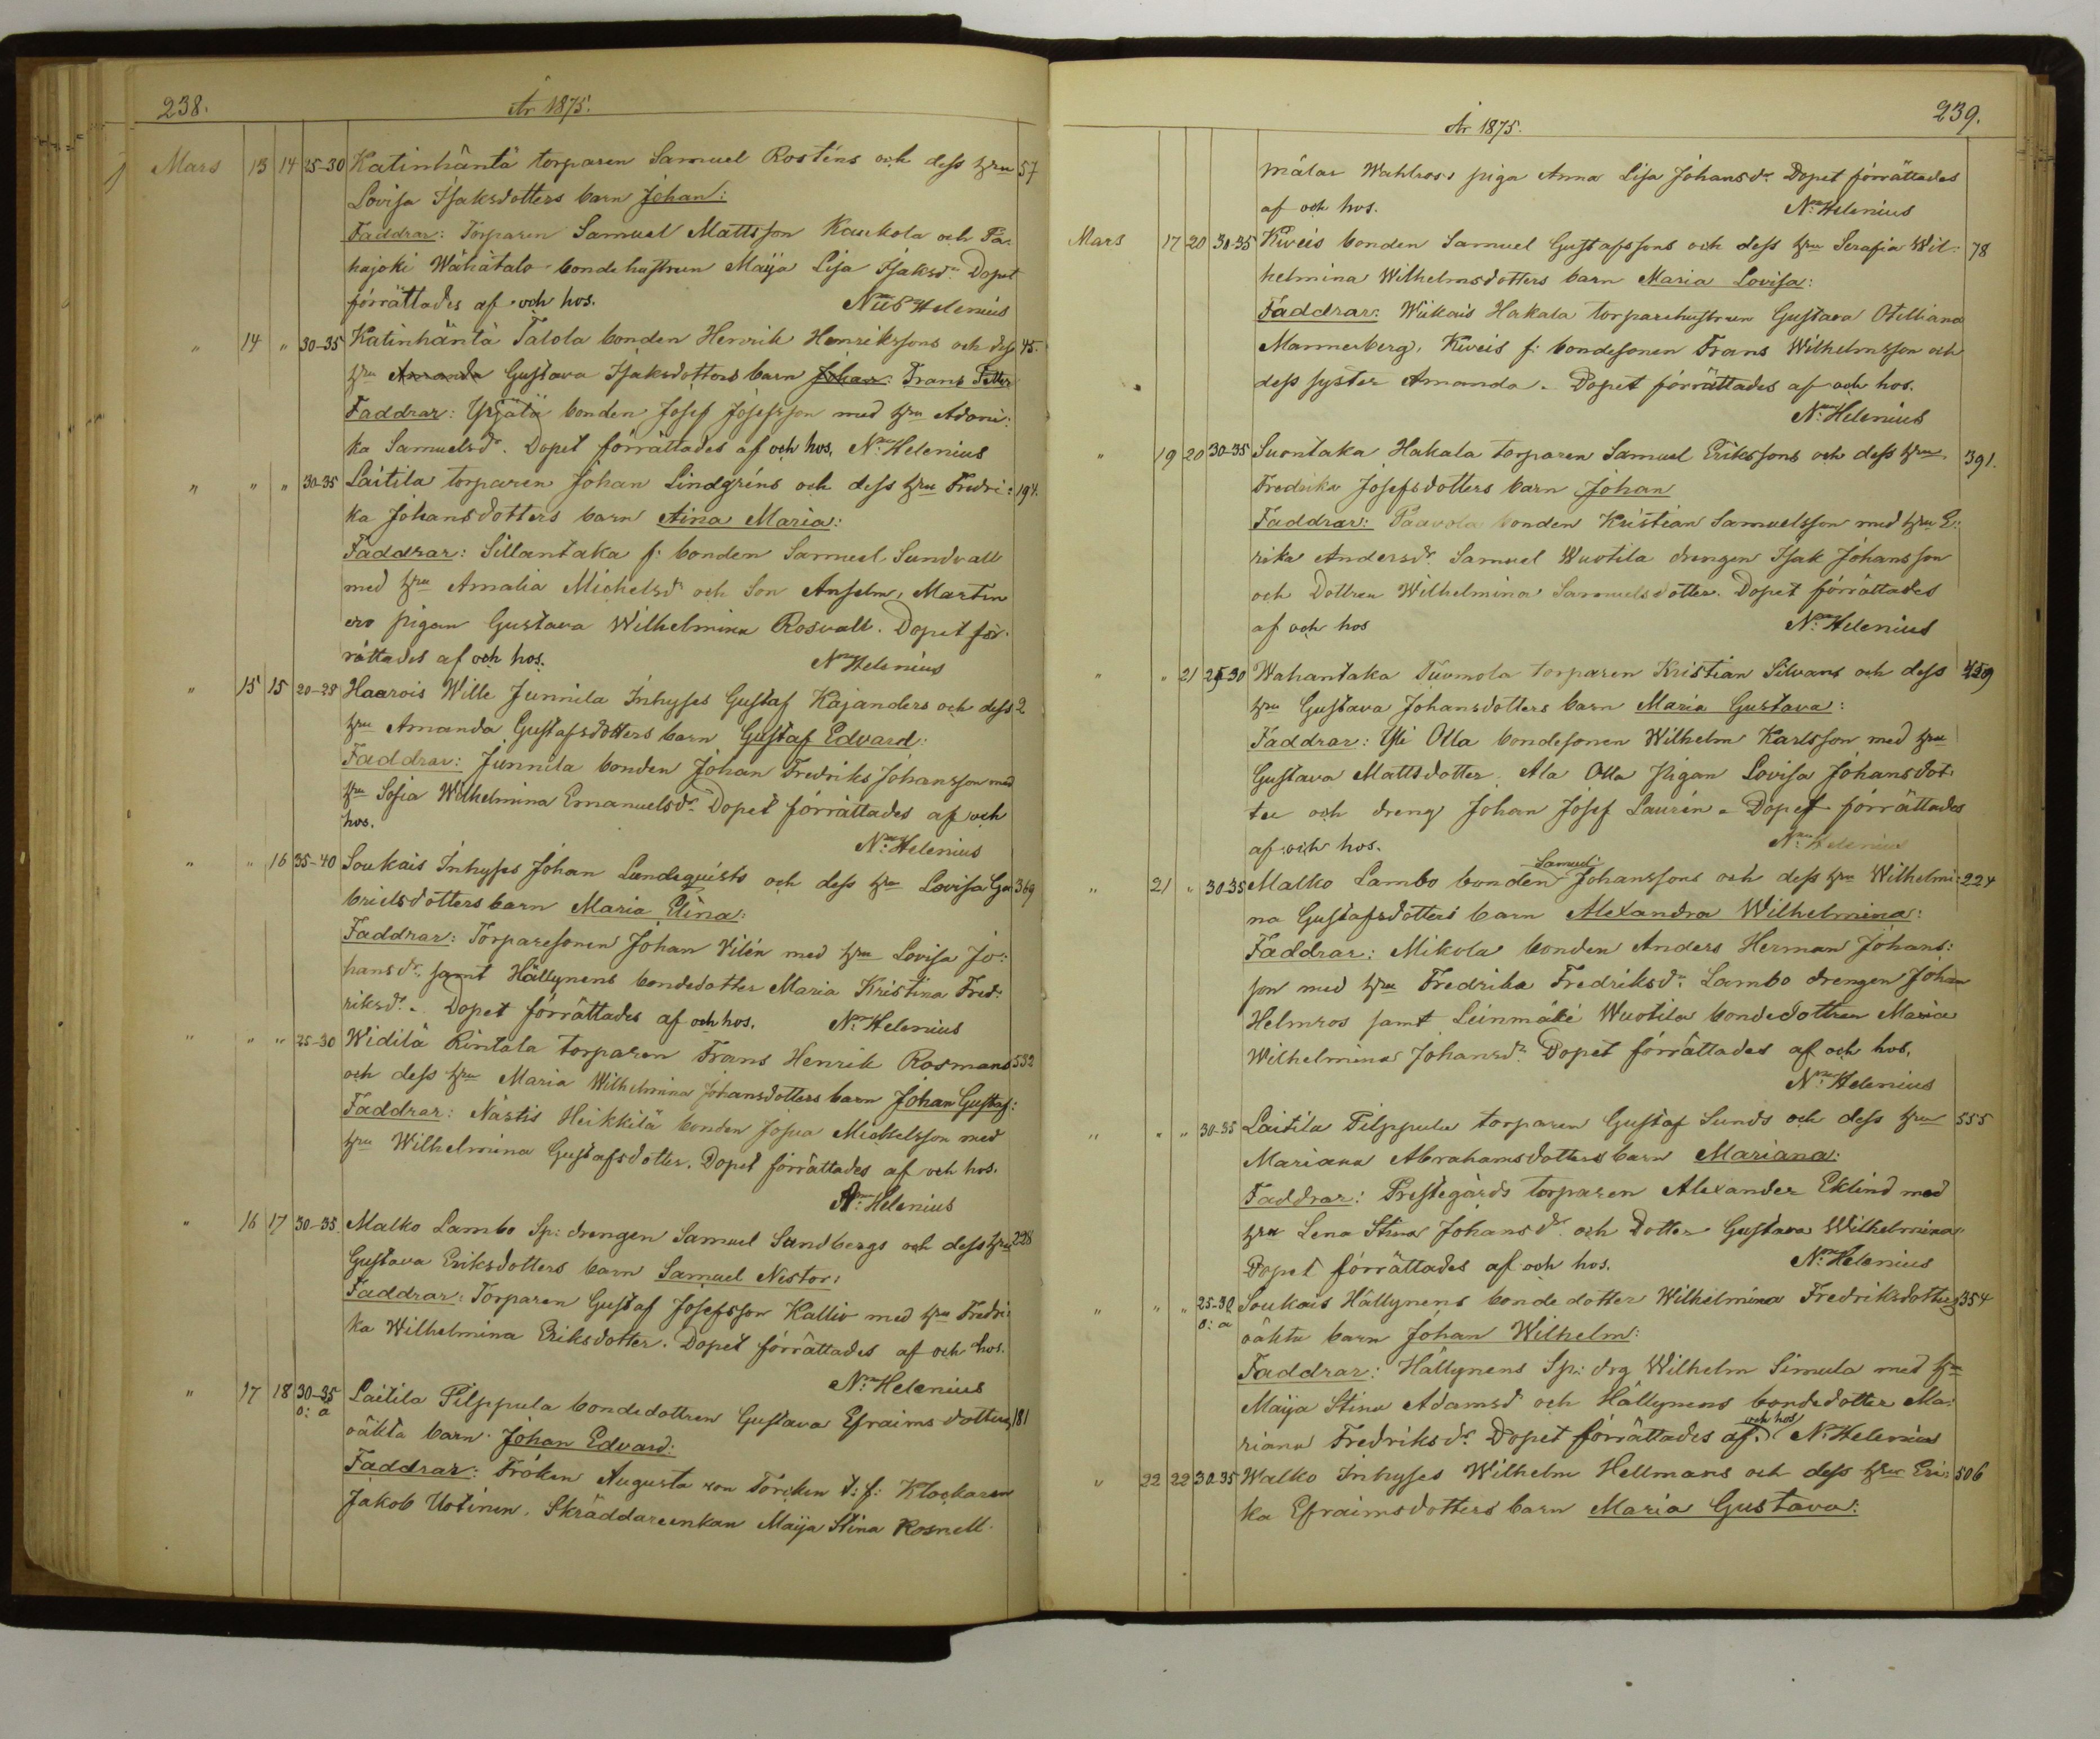 238.
År 1875.
Mars 13 14 25-30 Katinhäntä torparen Samuel Rosténs och dess hru 57
Lovisa Isaksdotters barn Johan:
Faddrar: Torparen Samuel Mattsson Kaukola och Pa-
hajoki Wähätalo bondehustrun Maija Lisa Isaksdr Dopet
förrättades af och hos. Nils Helenius
" 14 " 30-35 Katinhäntä Talola bonden Henrik Henrikssons och dess 45.
hru Amanda Gustava Isaksdotters barn Johan: Frans Petter
Faddrar: Yrjälä bonden Josef Josefsson med hru Adoni:
ka Samuelsdr. Dopet förrättades af och hos. N. Helenius
" " " 30-35 Laitila torparen Johan Lindgréns och dess hru Fredri: 194.
ka Johansdotters barn Aina Maria:
Faddrar: Sillantaka f: bonden Samuel Sundvall
med hru Amalia Michelsdr och Son Anselm, Martin
ero pigan Gustava Wilhelmina Rosvall. Dopet för-
rättades af och hos. N. Helenius
" 15 15 20-25 Haarois Wille Junnila Inhyses Gustaf Kajanders och dess 2
hru Amanda Gustafsdotters barn Gustaf Edvard:
Faddrar: Junnila bonden Johan Fredriks Johansson med
hru Sofia Wilhelmina Emanuelsdr. Dopet förrättades af och
hos. N. Helenius
" " 16 35-40 Soukais Inhyses Johan Lundeqvists och dess hru Lovisa Ga 369
brielsdotters barn Maria Elina:
Faddrar: Torparesonen Johan Vilén med hru Lovisa Jo:
hansdr. samt Hällynens bondedotter Maria Kristina Fred:
riksdr. Dopet förrättades af och hos. N. Helenius
" " " 25-30 Widilä Rintala torparen Frans Henrik Rosmans 532
och dess hru Maria Wilhelmina Johansdotters barn Johan Gustaf:
Faddrar: Nästis Heikkilä bonden Josua Michelsson med
hru Wilhelmina Gustafsdotter. Dopet förrättades af och hos.
N. Helenius
" 16 17 30-35 Malko Lambo Sp: drengen Samuel Sandbergs och dess hru 228
Gustava Eriksdotters barn Samuel Nestor:
Faddrar: Torparen Gustaf Josefsson Kallio med hru Fredri:
ka Wilhelmina Eriksdotter. Dopet förrättades af och hos.
N. Helenius
" 17 18 30-35 Laitila Pilppula bondedottren Gustava Efraimsdotters 181
o: ä
oäkta barn Johan Edvard:
Faddrar: Fröken Augusta von Törcken t: f: Klockaren
Jakob Uotinen, Skräddareenkan Maija Stina Rosnell
239.
År 1875.
målar Wahlross piga Anna Lisa Johansdr. Dopet förrättades
af och hos. N. Helenius
Mars 17 20 30-35 Kiveis bonden Samuel Gustafssons och dess hru Serafia Wil: 78
helmina Wilhelmsdotters barn Maria Lovisa:
Faddrar: Wiikais Hakala torparehustrun Gustava Otilliana
Mannerberg, Kiveis f: bondesonen Frans Wilhelmsson och
dess syster Amanda. Dopet förrättades af och hos.
N. Helenius
" 19 20 30-35 Suontaka Hakala torparen Samuel Erikssons och dess hru 391.
Fredrika Josefsdotters barn Johan
Faddrar: Paavola bonden Kristian Samuelsson med hru E:
rika Andersdr. Samuel Wuotila drengen Isak Johansson
och Dottren Wilhelmina Samuelsdotter. Dopet förrättades
af och hos N. Helenius
" " 21 25-30 Wahantaka Tuomola torparen Kristian Silvans och dess 459
hru Gustava Johansdotters barn Maria Gustava:
Faddrar: Yli Olla bondesonen Wilhelm Karlsson med hru
Gustava Mattsdotter. Ala Olla pigan Lovisa Johansdot-
ter och dreng Johan Josef Laurén. Dopet förrättades
af och hos. N. Helenius
" 21 " 30-35 Malko Lambo bonden Samuel Johanssons och dess hru Wilhelmi: 224
na Gustafsdotters barn Alexandra Wilhelmina:
Faddrar: Mikola bonden Anders Herman Johans:
son med hru Fredrika Fredriksdr. Lambo drengen Johan
Helmros samt Leinmäki Wuotila bondedottren Maria
Wilhelmina Johansdr. Dopet förrättades af och hos.
N. Helenius
" " " 30-35 Laitila Pilppula torparen Gustaf Sunds och dess hru 555
Mariana Abrahamsdotters barn Mariana:
Faddrar: Prestegårds torparen Alexander Eklind med
hru Lena Stina Johansdr. och Dotter Gustava Wilhelmina
Dopet förrättades af och hos. N. Helenius
" " " 25-30 Soukais Hällynens bondedotter Wilhelmina Fredriksdotters 354
o: ä
oäkta barn Johan Wilhelm:
Faddrar: Hällynens Sp: drg Wilhelm Simula med hru
Maija Stina Adamsd och Hällynens bondedotter Ma:
riana Fredriksdr. Dopet förrättades af och hos N. Helenius
" 22 22 30-35 Walko Inhyses Wilhelm Hellmans och dess hru Eri: 506
ka Efraimsdotters barn Maria Gustava: